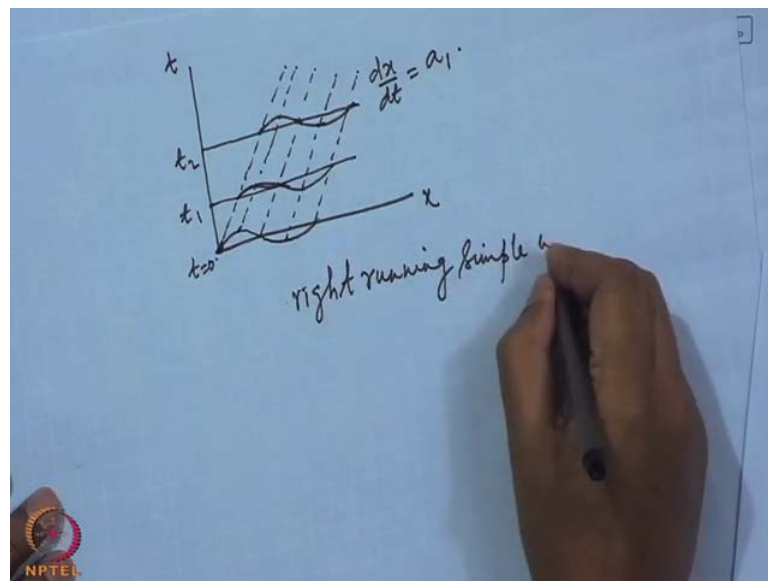 t
dx/dt = a₁.
t₂
t₁
x
t=0
right running simple
NPTEL